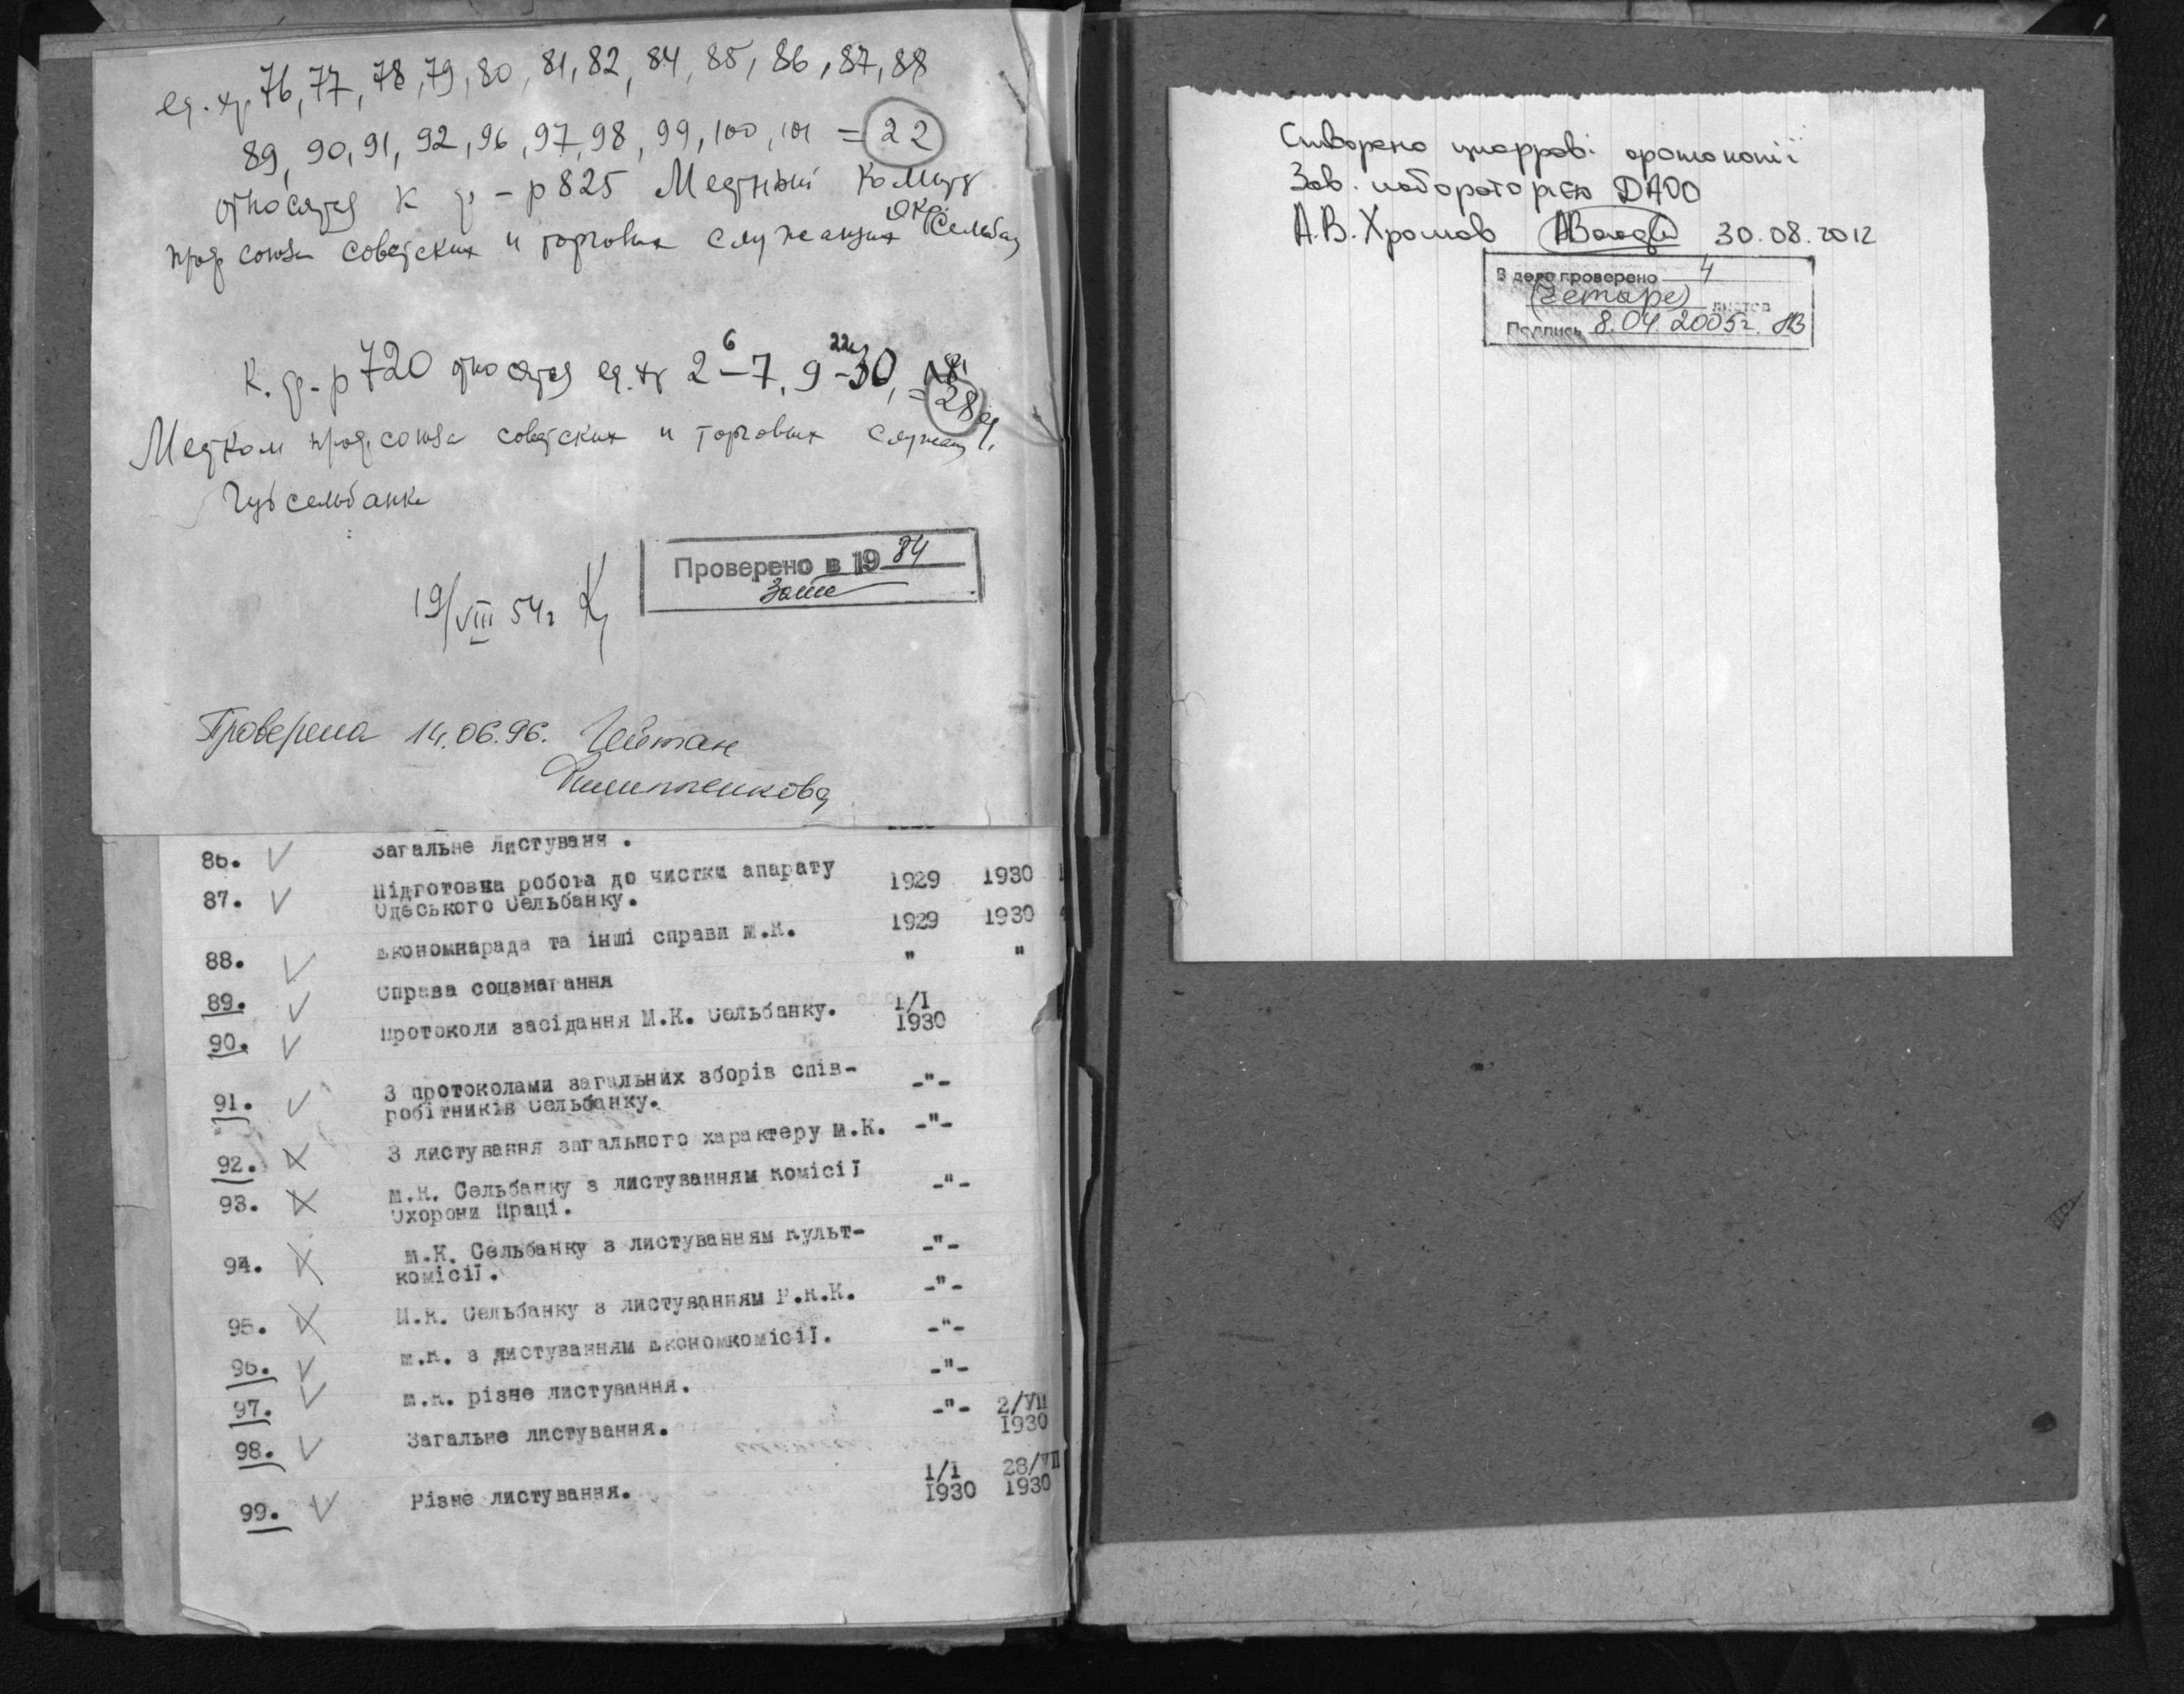 ед. хр. 76, 77, 78, 79, 80, 81, 82, 84, 85, 86, 87, 88
89, 90, 91, 92, 96, 97, 98, 99, 100, 101 = 22
относятся к ф-р 825 Местный Комит
проф союза советских и торговых служащих Окр. Сельбан
К. ф-р 720 относятся ед. хр 2-7, 9-30,
6 22
= 28 ед.
Местком проф. союза советских и торговых служащ
Губсельбанка
Проверено в 19 84
19/VIII 54г
Проверена 14.06.96.
86. Загальне листуваня .
87. Підготовна робота до чистки апарату 1929 1930
Одеського Сельбанку.
88. Економнарада та інші справи М.К. 1929 1930
89. Справа соцзмагання " "
90. Протоколи засідання М.К. Сельбанку. 1/I
1930
91. З протоколами загальних зборів спів- -"-
робітників Сельбанку.
92. З листування загального характеру М.К. -"-
93. М.К. Сельбанку з листуванням комісії -"-
Охорони Праці.
94. М.К. Сельбанку з листуванням Культ- -"-
комісії.
95. М.К. Сельбанку з листуванням Р.К.К. -"-
96. М.К. з листуванням Економкомісії. -"-
97. М.К. різне листування. -"-
98. Загальне листування. -"- 2/VII
1930
99. Різне листування. 1/I 28/VII
1930 1930
Створено цифрові фотокопії
Зав. лабораторією ДАОО
А.В. Хромов 30.08.2012
В деле проверено 4
(четыре) листов
Подпись 8.04 2005г.